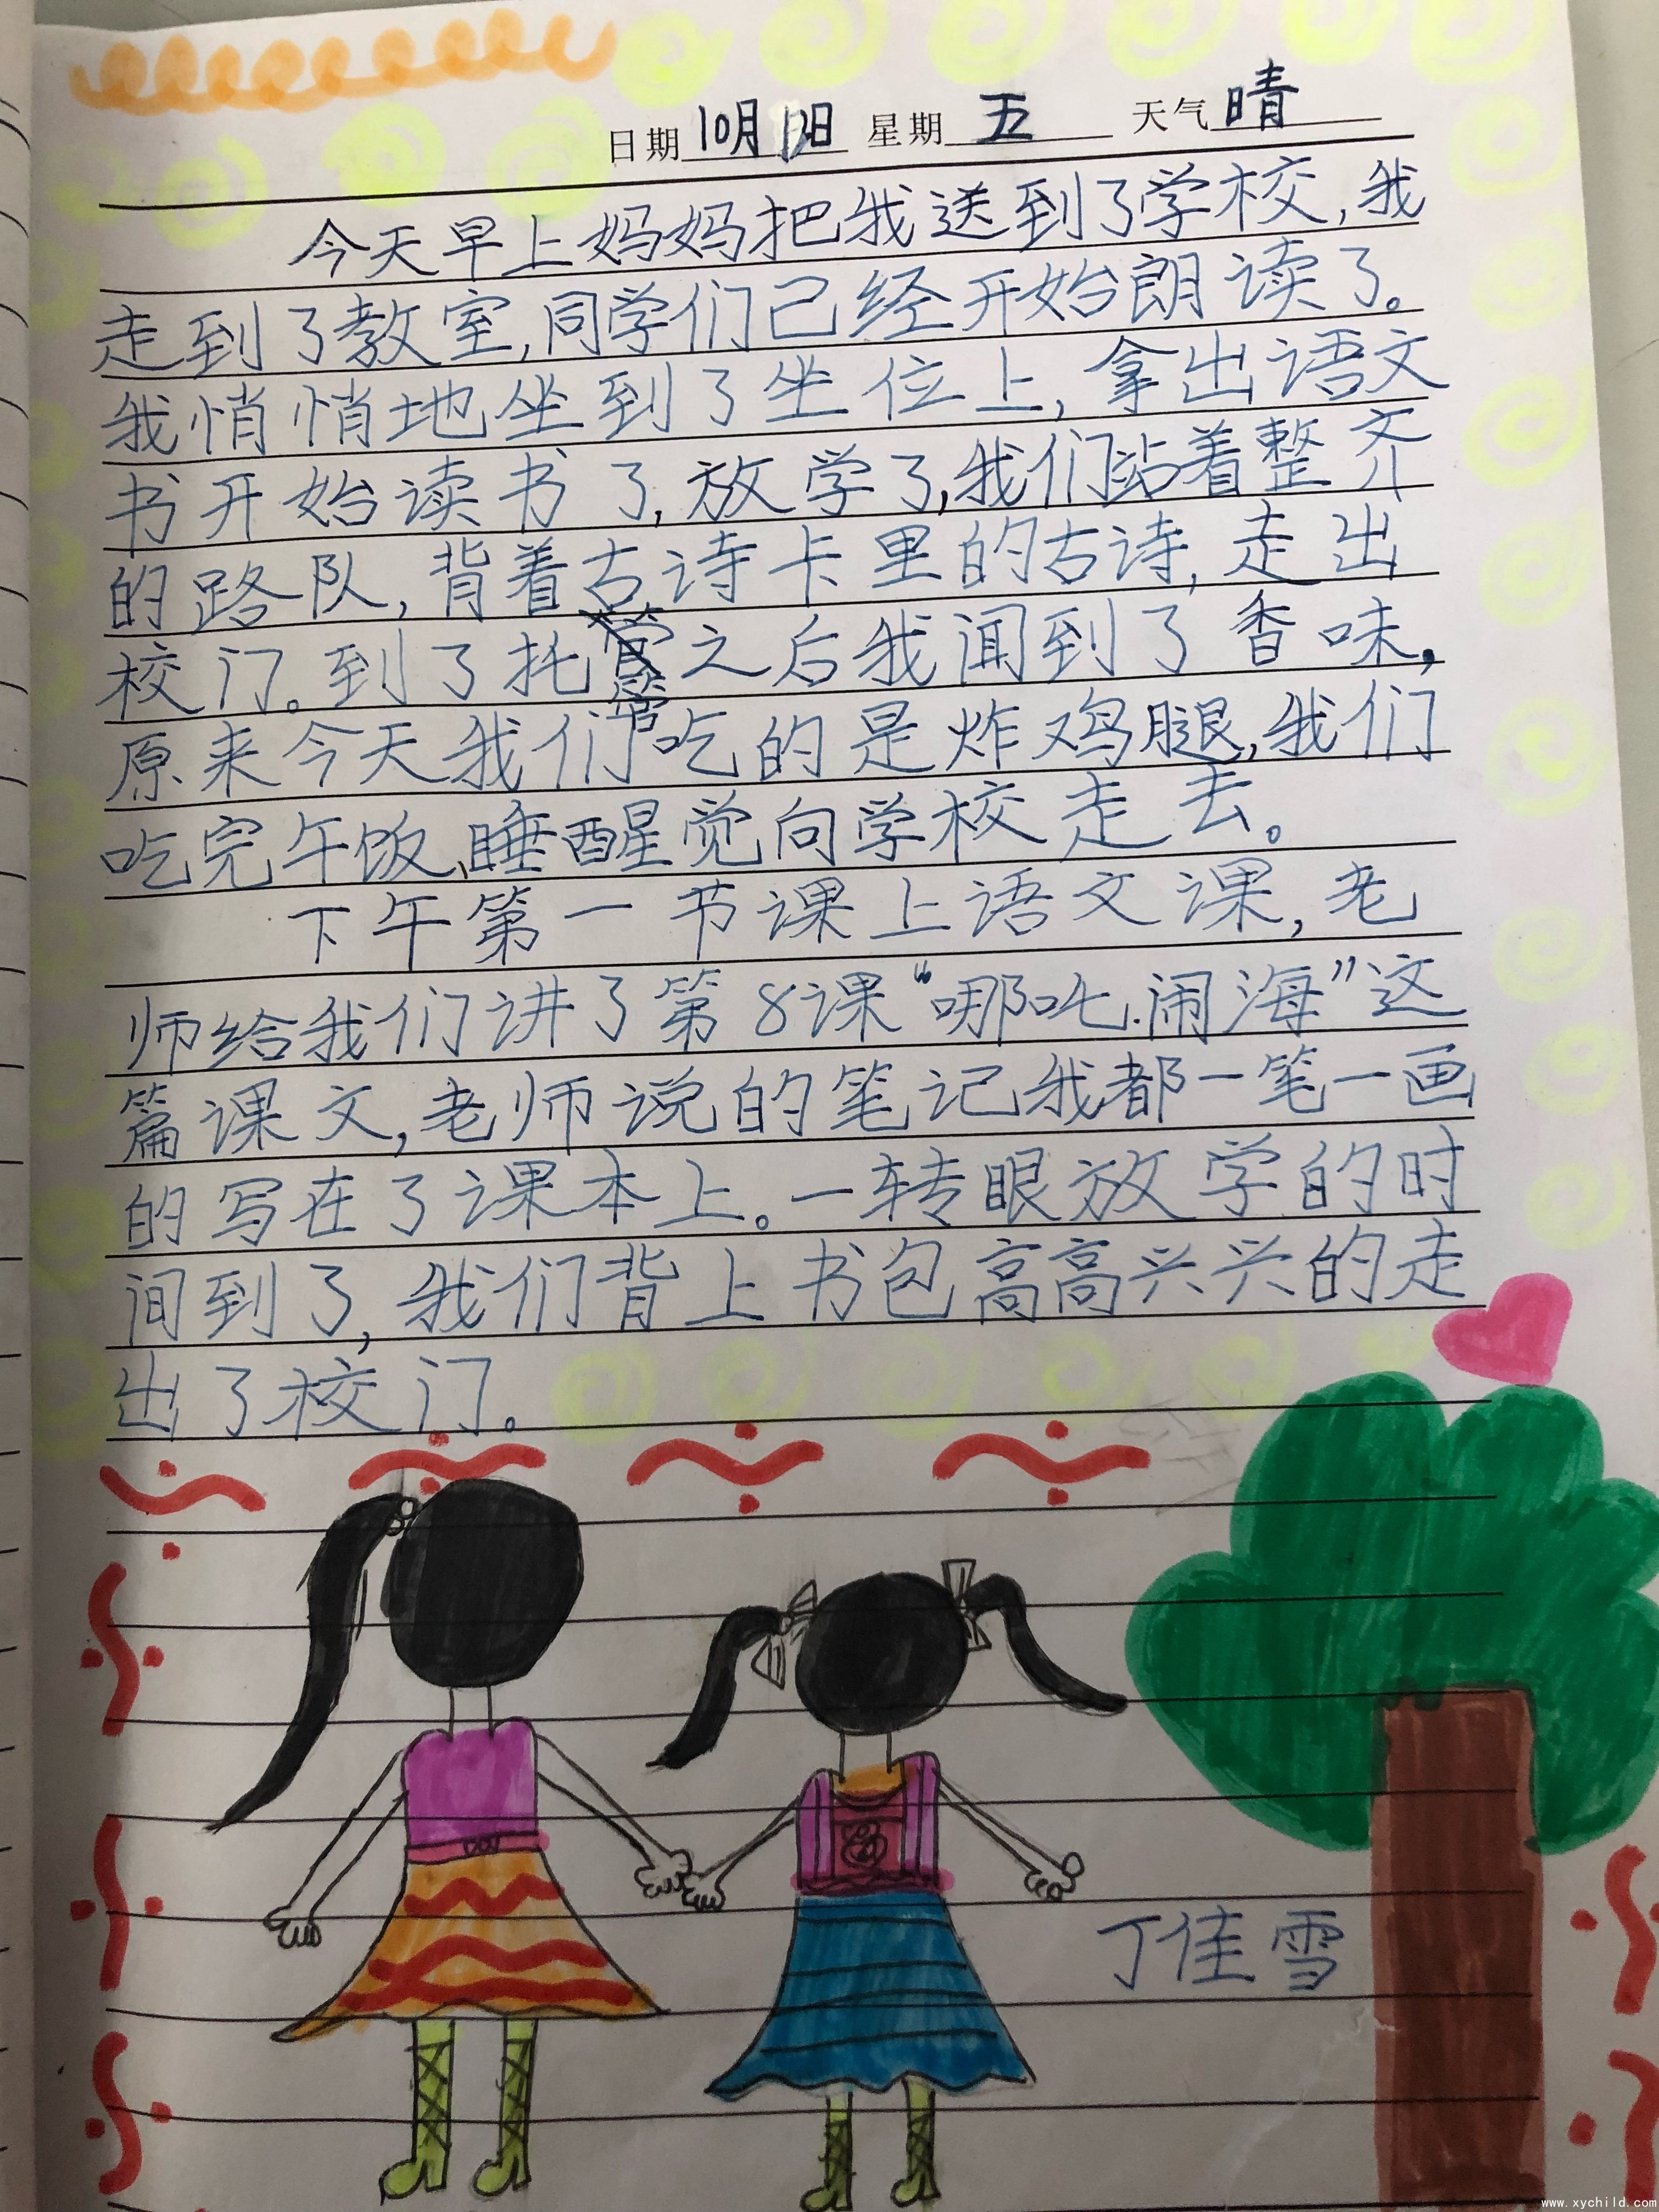 日期 10月12日 星期 五 天气 晴
今天早上妈妈把我送到了学校,我
走到了教室,同学们已经开始朗读了。
我悄悄地坐到了坐位上,拿出语文
书开始读书了,放学了,我们站着整齐
的路队,背着古诗卡里的古诗,走出
校门。到了托管之后我闻到了香味,
原来今天我们吃的是炸鸡腿,我们
吃完午饭、睡醒觉向学校走去。
下午第一节课上语文课,老
师给我们讲了第8课“哪吒闹海”这
篇课文,老师说的笔记我都一笔一画
的写在了课本上。一转眼放学的时
间到了,我们背上书包高高兴兴的走
出了校门。
丁佳雪
www.xychild.com